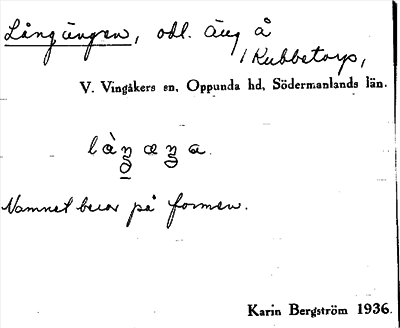 Långängen, odl. äng å
Rubbetorp,
V. Vingåkers sn, Oppunda hd, Södermanlands län.
Namnet beror på formen.
Karin Bergström 1936.